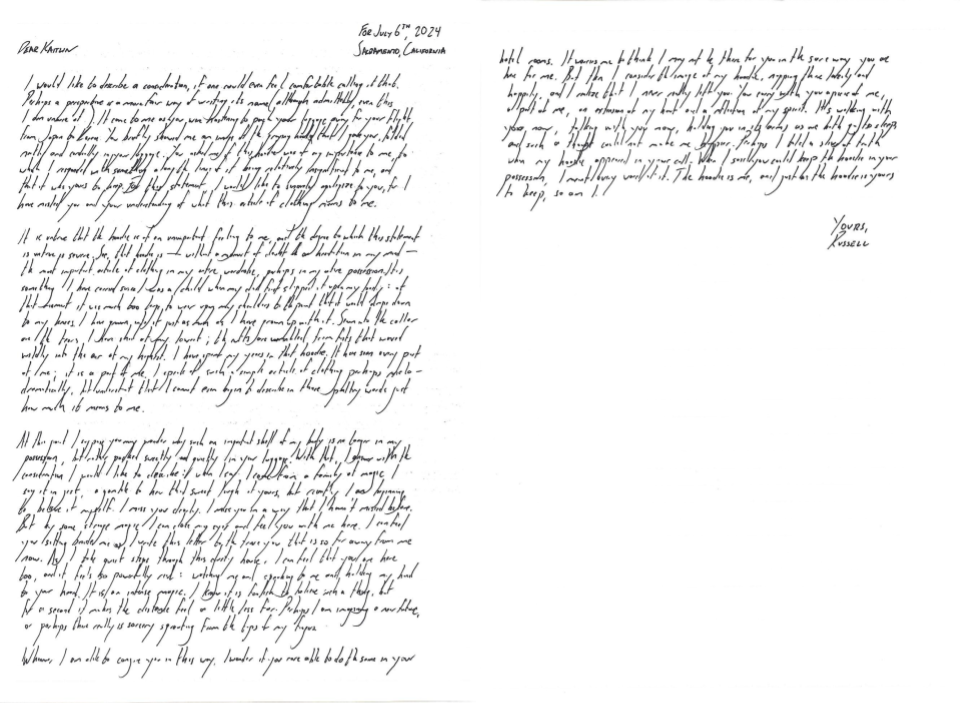 For July 6th, 2024
Sacramento, California
Dear Kaitlin
I would like to describe a consideration, if one could even feel comfortable calling it that.
Perhaps a perspective is a more fair way of writing its name, although admittedly, even this
I am unsure of. It came to me as you were
from Japan to You briefly showed me an image of the hoodie that I gave you, folded
neatly and carefully in your luggage. You of its importance to me, to
which I responded with something along the lines of it being relatively insignificant to me, and
that it was yours to keep. For this statement, I would like to apologize to you, for I
have misled you and your understanding of what this article of clothing means to me.
It is untrue that the hoodie is of an unimportant feeling to me, and the degree to which this statement
is untrue is severe. See, that hoodie is — without an amount of doubt or hesitation in my mind —
the most important article of clothing in my entire wardrobe, perhaps in my entire possession. It is
something I have carried since I was a child when my dad first slipped it upon my body; at
that moment it was much too large, to wear upon my shoulders to the point that it would drape down
to my knees. I have grown into it just as much as I have grown up with it. Sewn into the collar
are the tears I have shed at my lowest; the cuffs are from fists that waved
wildly into the air at my highest. I have spent my years in that hoodie. It has seen every part
of me; it is a part of me. I speak of such a simple article of clothing perhaps melo-
dramatically, but understand that I cannot even begin to describe in these paltry words just
how much it means to me.
At this point I suppose you may ponder why such an important shell of my body is no longer in my
possession, but rather packed sweetly and quietly in your luggage. With that, I answer with the
consideration I would like to describe: if when I say I come from a family of magic, I
say it in jest, to hear that sweet laugh of yours, but recently I am beginning
to believe it myself. I miss you deeply. I miss you in a way that I haven't missed before.
But by some strange magic I can close my eyes and feel you with me here. I can feel
you sitting beside me as I write this letter by the you that is so far away from me
now. As I take quiet steps through this empty house, I can feel that you are here
too, and it feels too powerfully real: watching me and speaking to me and holding my hand
to your hand. It is an intense magic. I know it is foolish to believe such a thing, but
for a second it makes the distance feel a little less far. Perhaps I am imagining a new future,
or perhaps there really is sorcery sprouting from the tips of my fingers.
Whenever I am able to conjure you in this way, I wonder if you are able to do the same in your
hotel rooms. It worries me to think I may not be there for you in the same way you are
here for me. But then I consider the image of my hoodie, there lovely and
happily, and I realize that I never really left you. You carry with you a piece of me,
a part of me, an extension of my heart and a reflection of my spirit. It is walking with
you now, talking with you now, holding you in its arms as we both go to sleep
and such a thought could not make me happier. Perhaps I told a sliver of truth
when my hoodie appeared in your call. When I said you could keep the hoodie in your
possession, I meant every word of it. The hoodie is me, and just as the hoodie is yours
to keep, so am I.
Yours,
Russell